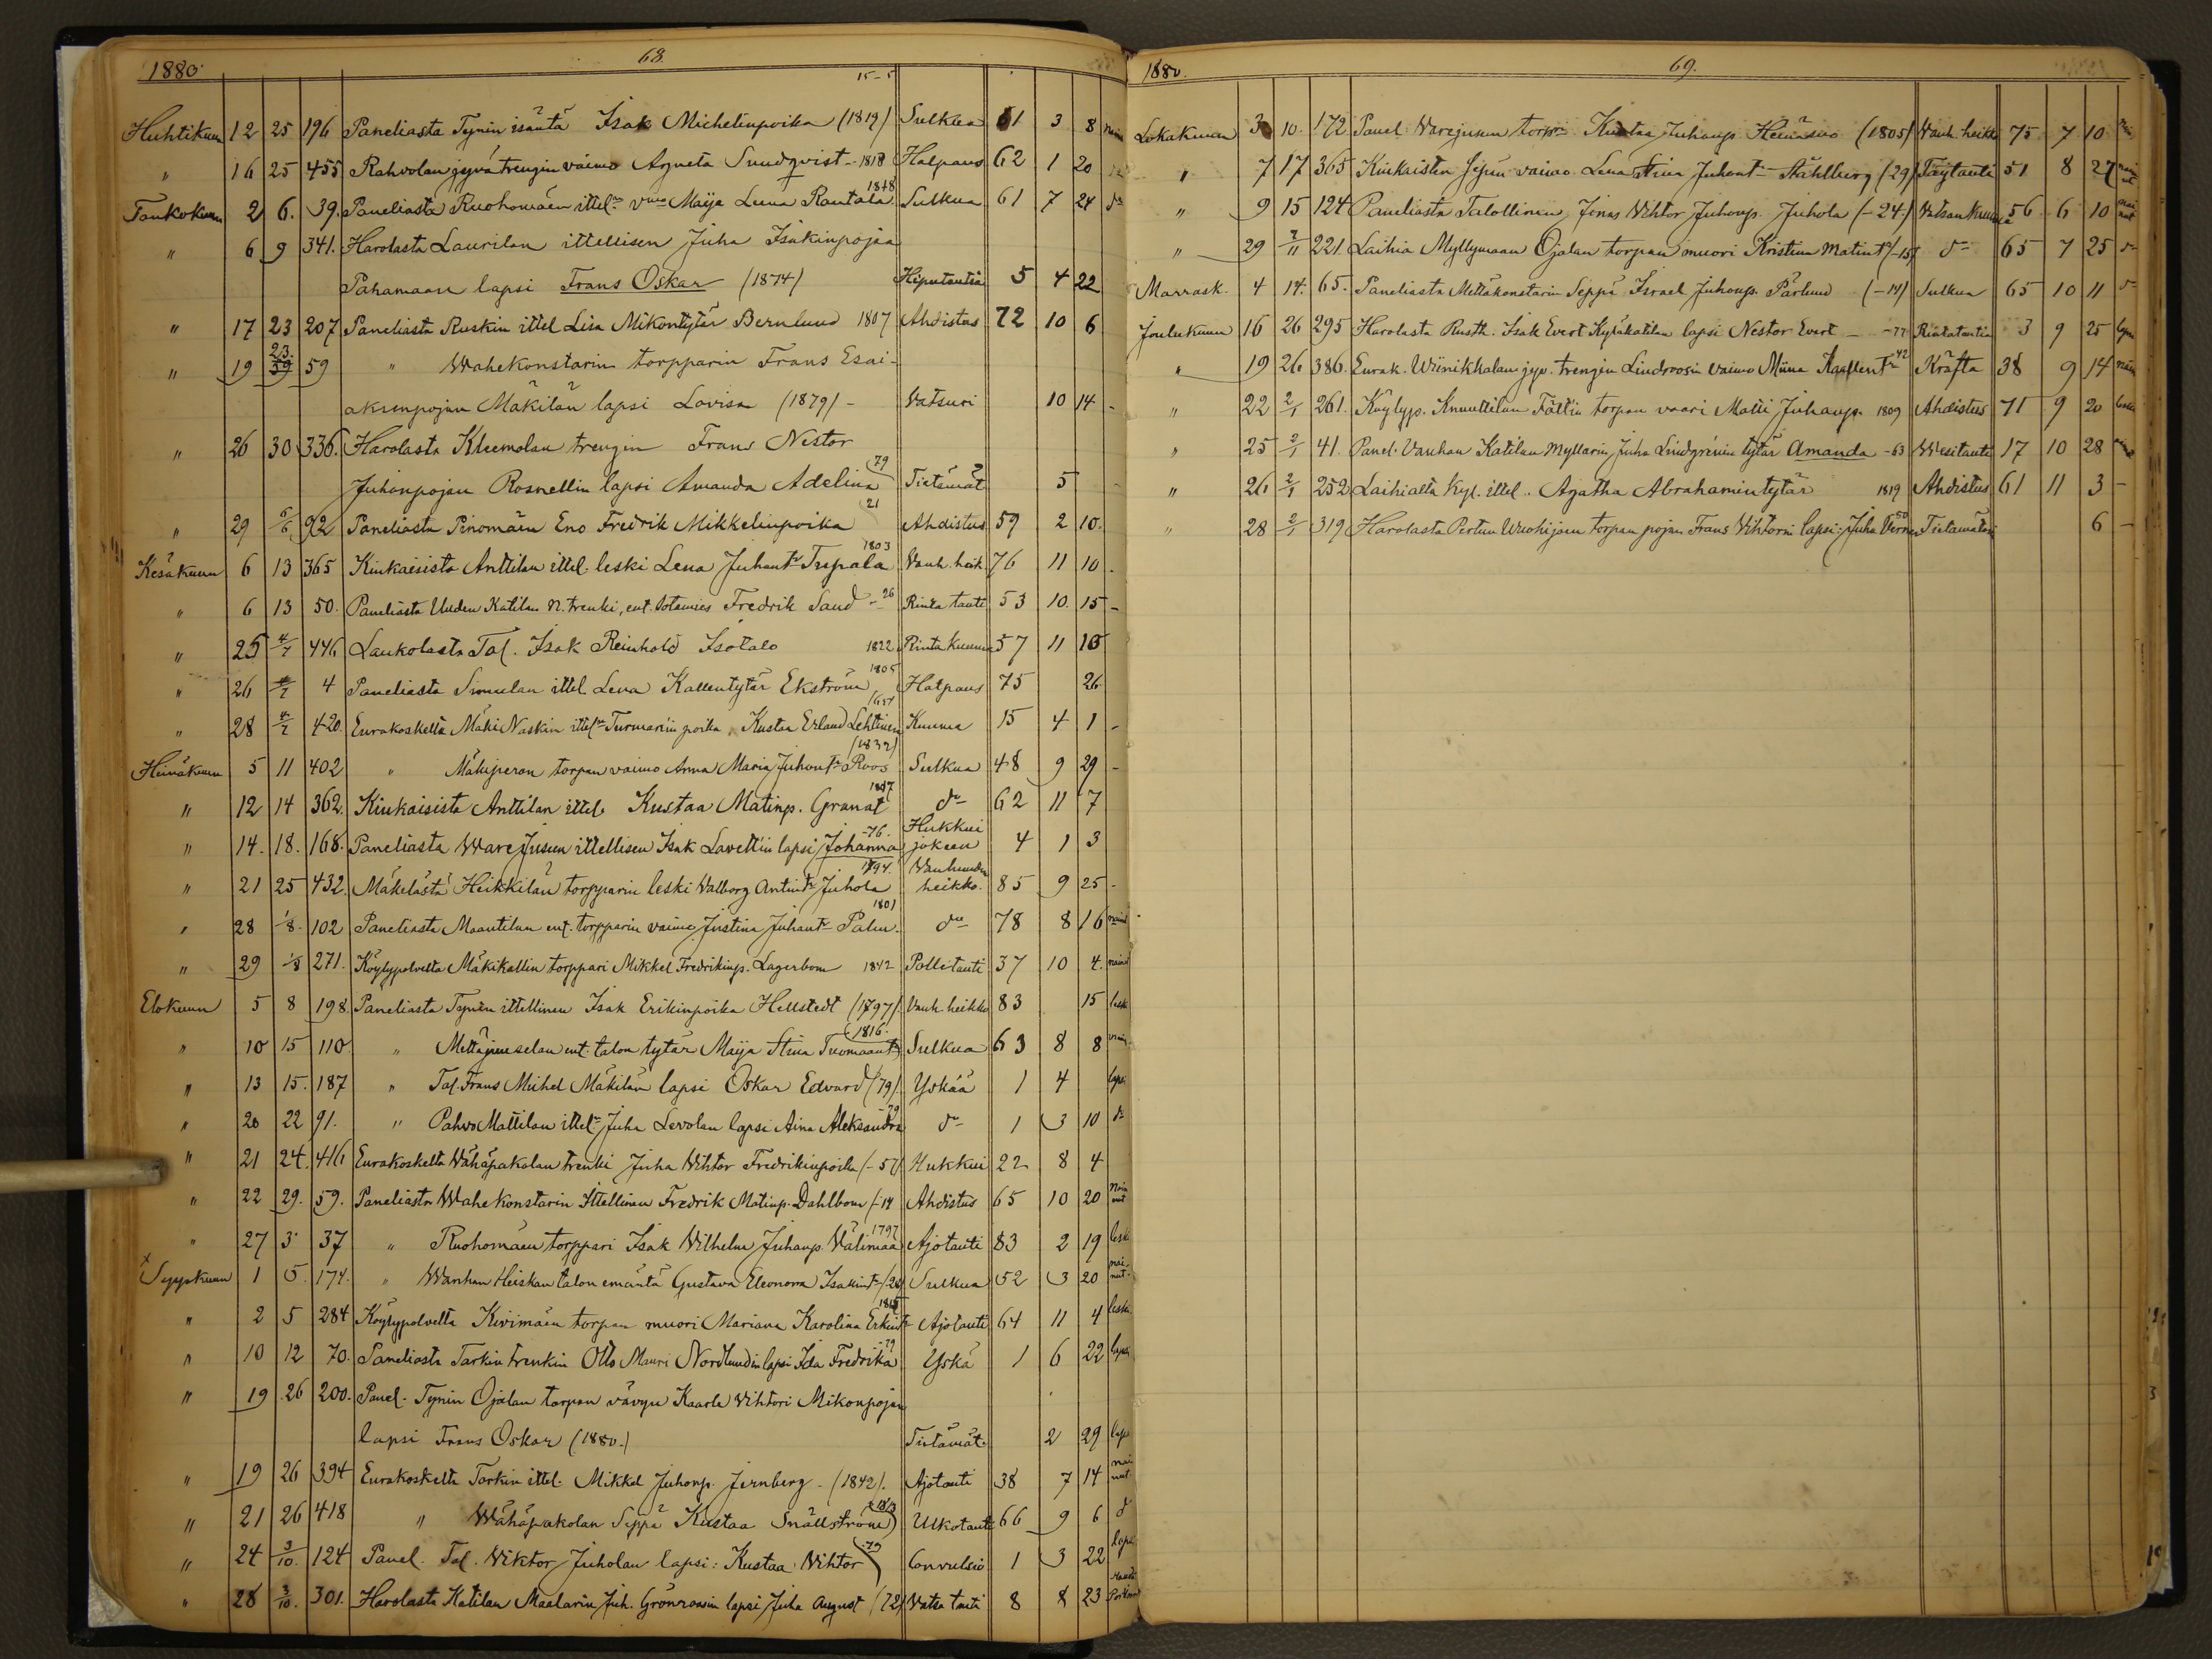 1880. 68.
15-5
Huhtikuun 12 25 196 Paneliasta Tynin isäntä Isak Michelinpoika (1819) Sulkua 61 3 8
" 16 25 455 Rahvolan jyvätrengin vaimo Agneta Sundqvist - 1818 Halpaus 62 1 20
Toukokuun 2 6. 39. Paneliasta Ruohomäen ittel. vmo Maija Leena Rantala 1818 Sulkua 61 7 24 do
" 6 9 341. Harolasta Laurilan ittellisen Juha Isakinpojan
Pahamaan lapsi Frans Oskar (1874) Hiputautia 5 4 22
" 17 23 207 Paneliasta Ruskin ittel Lisa Mikontytär Bernlund 1807 Ahdistus 72 10 6
" 19 23. 59 " Wahekonstarin torpparin Frans Esai-
akunpojan Mäkilän lapsi Lovisa (1879) - Vatsuri 10 14 -
" 26 30 336. Harolasta Kleemolan trengin Frans Nestor
Juhonpojan Rosnellin lapsi Amanda Adelina 79 Tietämät 5 -
" 29 6/6 92 Paneliasta Pinomäen Eno Fredrik Mikkelinpoika 21 Ahdistus 59 2 10.
Kesäkuun 6 13 365 Kiukaisista Anttilan ittel. leski Lena Juhantr Tupala 1803 Vanh. heik 76 11 10.
" 6 13 50. Paneliasta Uuden Katilan N. trenki, ent. sotamies Fredrik Sand - 26 Rinta tauti 53 10. 15 -
" 25 4/7 446 Laukolasta Tal. Isak Reinhold Isotalo 1822 Rinta kuume 57 11 15
" 26 4/7 4 Paneliasta Simulan ittel. Leva Kallentytär Ekström 1805 Halpaus 75 26.
" 28 4/7 420. Eurakoskelta Mäki Naskin ittel. Turmarin poika Kustaa Erland Lehtinen Kuume 15 4 1 -
Heinäkuun 5 11 402 " Mäkiperan torpan vaimo Anna Maria Juhontr Roos (1832) Sulkua 48 9 29 -
" 12 14 362. Kiukaisista Anttilan ittel. Kustaa Matinp. Granat 1817 do 62 11 7
" 14. 18. 168. Paneliasta WareJusun ittellisen Isak Lavettin lapsi Johanna -76. Hukkui jokeen 4 1 3
" 21 25 432. Mäkelästä Heikkilän torpparin leski Valborg Antintr Juhola 1794. Vanhuuden heikko. 85 9 25 -
" 28 1/8. 102 Paneliasta Maantilan ent. torpparin vaimo Justina Juhantr Palm. 1801 do 78 8 16
" 29 1/8 271. Köylypolvelta Mäkikallin torppari Mikkel Fredrikinp. Lagerbom 1842 Polletauti 37 10 4.
Elokuun 5 8 198. Paneliasta Tynin ittellinen Isak Erikinpoika Hellstedt (1797). Vanh. heikko 83 15 leski
" 10 15 110. " Mettäjuuselan ent. talon tytär Maija Stina Tuomaantr (1816. Sulkua 63 8 8
" 13 15. 187 " Tal. Frans Michel Mäkilän lapsi Oskar Edvard (79). Yskää 1 4 lapsi
" 20 22 91. " Pahvo Mattilan ittel. Juha Levolan lapsi Aina Aleksandra -79 do 1 3 10 do
" 21 24. 416 Eurakoskelta Vähäpakolan trenki Juha Vihtor Fredrikinpoika (-57) Hukkui 22 8 4
" 22 29. 59. Paneliasta Wahekonstarin Ittellinen Fredrik Matinp. Dahlbom (-14 Ahdistus 65 10 20 Nainut
" 27 3 37 " Ruohomäen torppari Isak Vilhelm Juhanp. Välimaa 1797 Ajotauti 83 2 19 leski
Syyskuun 1 5. 174. " Wanhan Heiskan talon emäntä Gustava Eleonora Isakintr (28) Sulkua 52 3 20 nainut.
" 2 5 284 Köylypolvelta Kivimäen torpan muori Mariana Karolina Erkintr Ajotauti 64 11 4 leski
" 10 12 70. Paneliasta Tarkin trenkin Otto Mauri Nordlundin lapsi Ida Fredrika -79 Yskä 1 6 22 lapsi
" 19 26 200. Panel. Tynin Ojalan torpan vävyn Kaarle Vihtori Mikonpojan
lapsi Frans Oskar (1880.) Tietämät. 2 29 lapsi
" 19 26 394 Eurakoskelta Tarkin ittel. Mikkel Juhonp. Jernberg - (1842). Ajotauti 38 7 14 nainut.
" 21 26 418 " Wähäpakolan Seppä Kustaa Snällström (1813) Ulkotauti 66 9 6 do
" 24 3/10. 124 Panel. Tal. Wiktor Juholan lapsi: Kustaa Vihtor -79 Convulsio 1 3 22 lapsi
" 28 3/10. 301. Harolasta Katilan Maalarin Juh. Grönroosin lapsi Juha August (72) Vatsa tauti 8 8 23
1880. 69.
Lokakuun 3 10. 172 Panel. Warejusun torpr. Kustaa Juhanp. Heinäsuo (1805) Vanh. heikk 75 7 10
" 7 17 365 Kiukaisten Jyrin vaimo Lena Stina Juhontr Ståhlberg (29) Täytauti 51 8 27 nainut
" 9 15 124 Paneliasta Talollinen Jonas Vihtor Juhonp. Juhola (-24.) Vatsankuume 56 6 10 nainut
" 29 7/11 221. Laihia Myllymaan Ojalan torpan muori Kristina Matintr (-15) do 65 7 25 do
Marrask. 4 14. 65. Paneliasta Mettäkonstarin Seppä Israel Juhonp. Pärlund (-14) Sulkua 65 10 11 do
Joulukuun 16 26 295 Harolasta Rusth. Isak Evert Kyläkatilan lapsi Nestor Evert - -77 Rintatautia 3 9 25 lapsi
" 19 26 386. Eurak. Wiinikkalan jyv. trengin Lindroosin vaimo Miina Kallentr 42 Kräfta 38 9 14
" 22 2/1 261. Köylyp. Knuuttilan Fältin torpan vaari Matti Juhanp. 1809 Ahdistus 71 9 20 leski
" 25 2/1 41. Panel. Vanhan Katilan Myllarin Juha Lindgrénin tytär Amanda -63 Wesitauti 17 10 28
" 26 2/1 252 Laihialta Kyl. ittel. Agatha Abrahamintytär 1819 Ahdistus 61 11 3 -
" 28 2/1 319 Harolasta Pertun Wuohijoen torpan pojan Frans Vihtorin lapsi: Juha Verner Tietämätöin 6 -